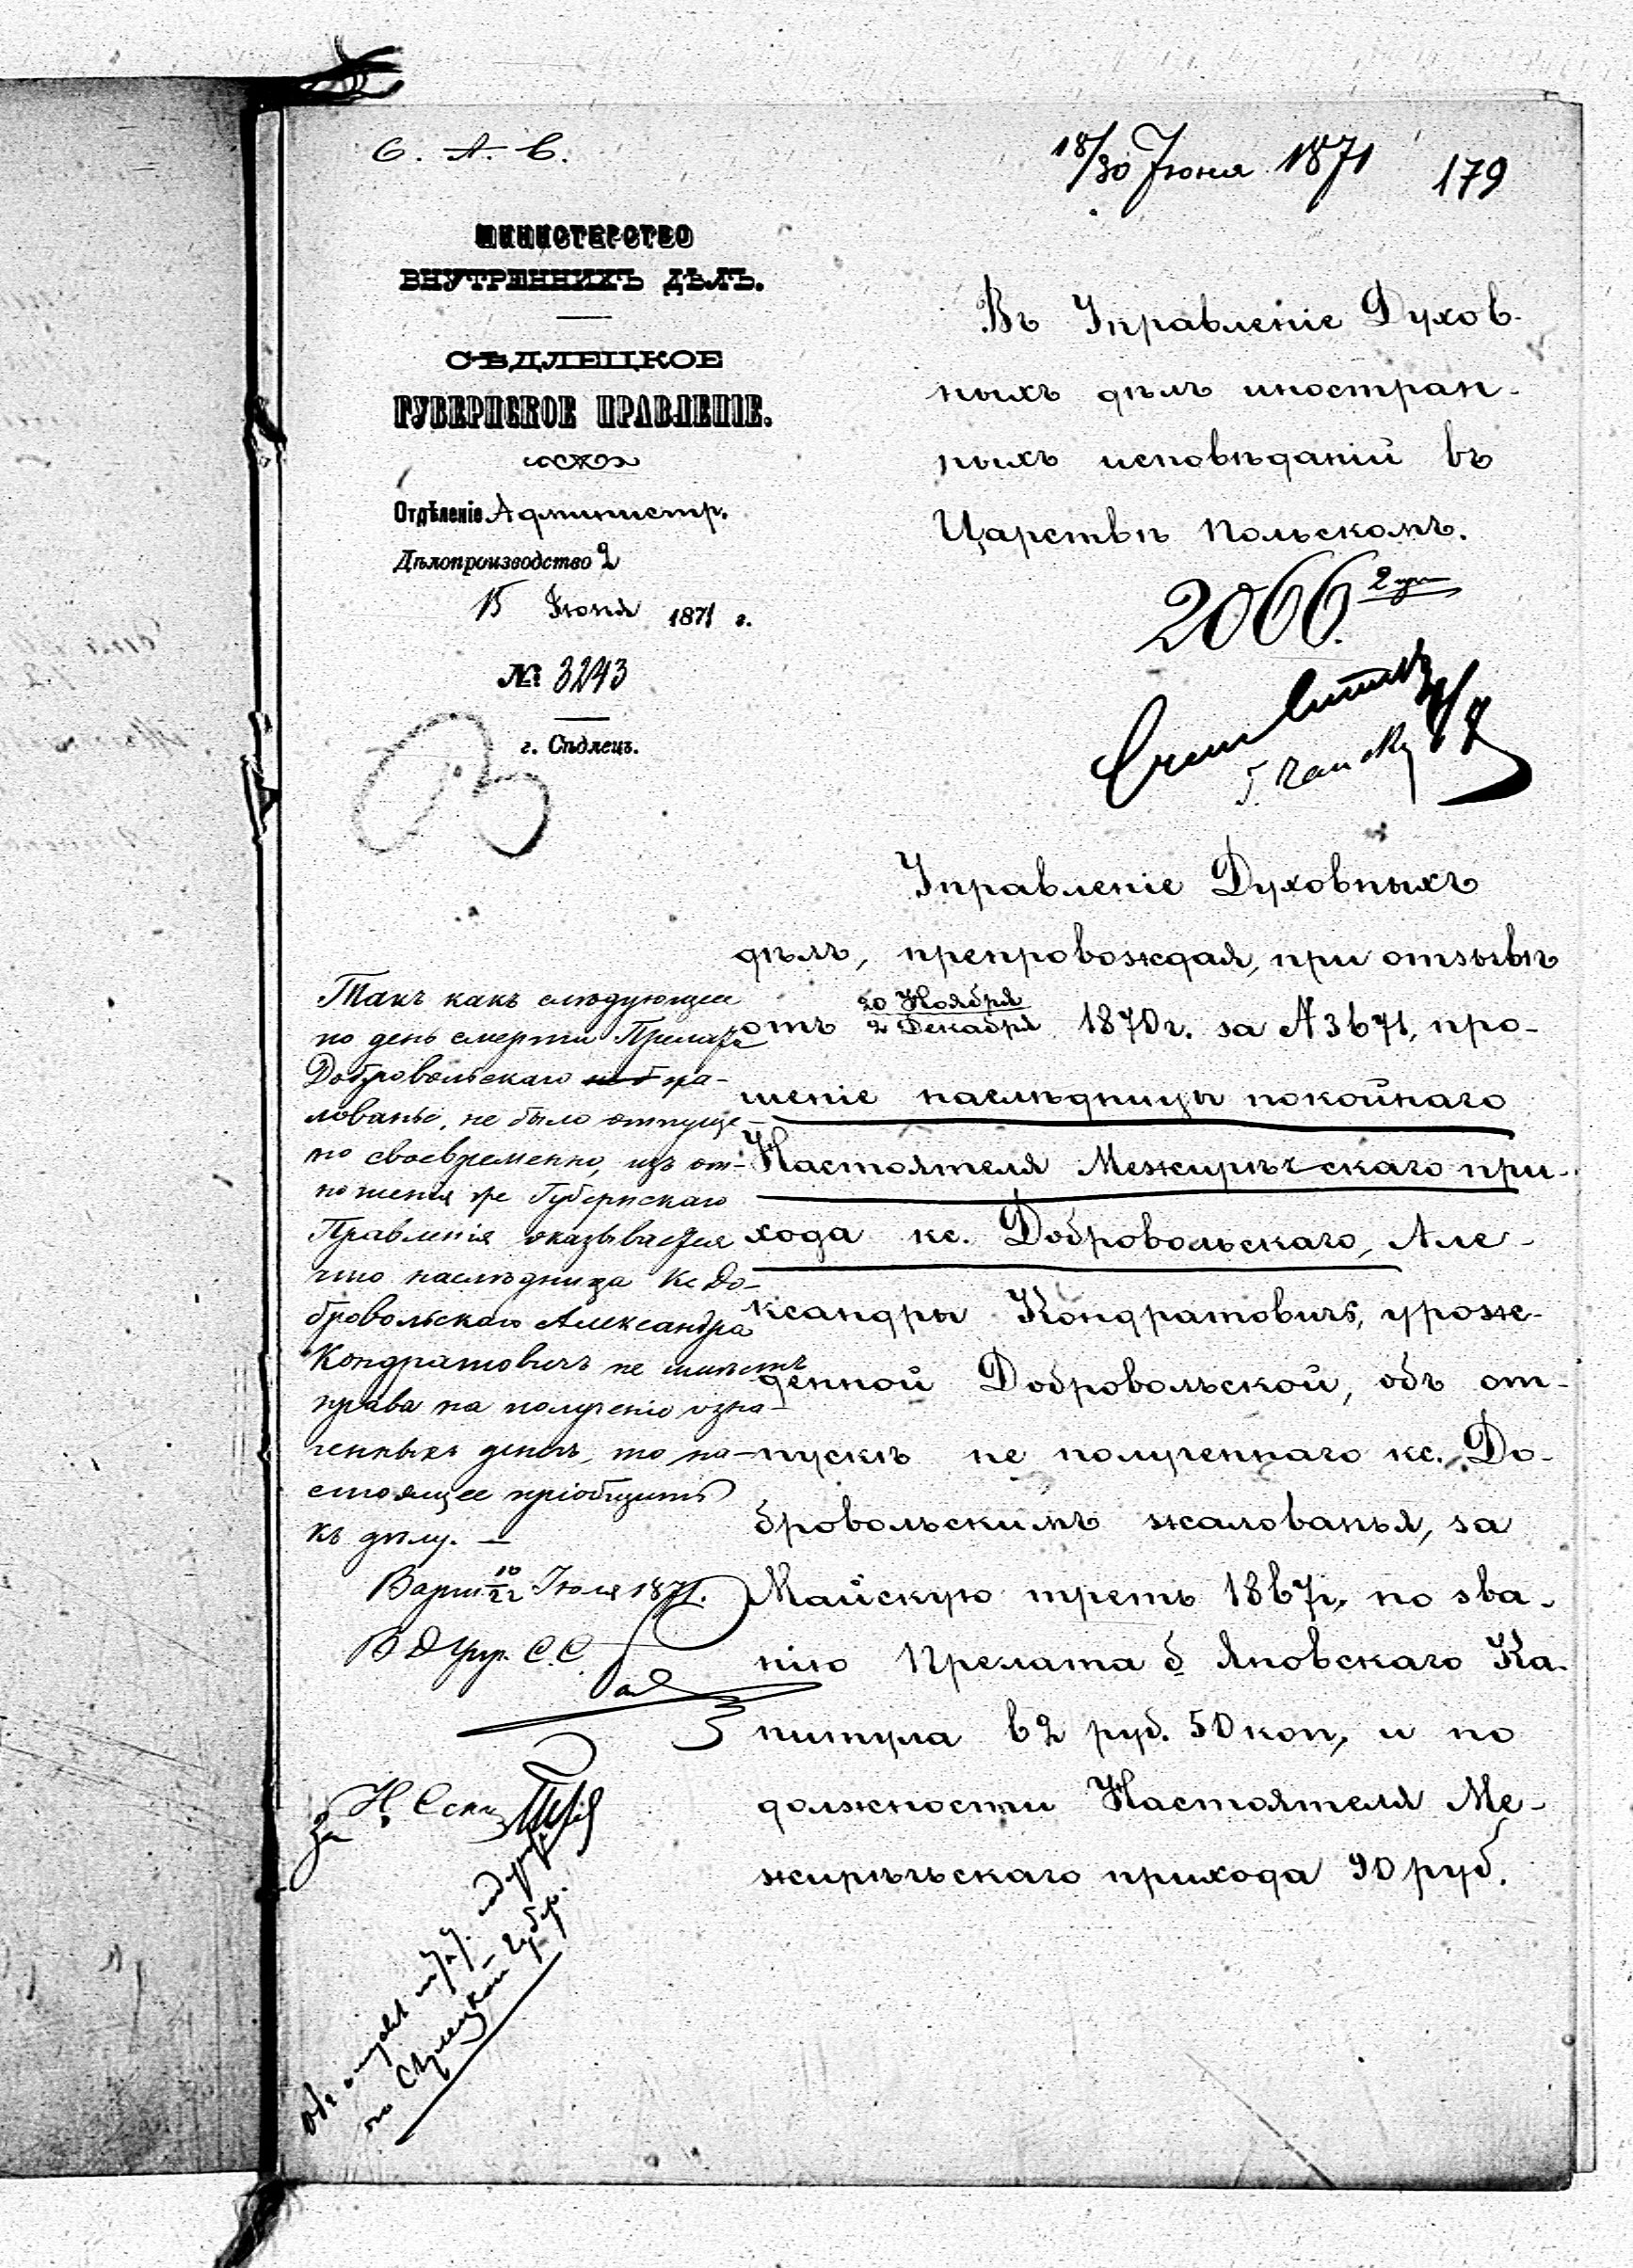 С. А. С.
18/30 Июня 1871
179
МИНИСТЕРСТВО
ВНУТРЕННИХЪ ДѢЛЪ.
СѢДЛЕЦКОЕ
ГУБЕРНСКОЕ ПРАВЛЕНІЕ.
Отдѣленіе Администр.
Дѣлопроизводство 2
15 Іюня 1871 г.
№ 3243
г. Сѣдлецъ.
Въ Управленіе Духов-
ныхъ дѣлъ иностран-
ныхъ исповѣданій въ
Царствѣ Польскомъ.
2066.
Управленіе Духовныхъ
дѣлъ, препровождая, при отзывѣ
отъ 20 Ноября / 2 Декабря 1870 г. за № 3671, про-
шеніе наслѣдницы покойнаго
Настоятеля Межирѣчскаго при-
хода кс. Добровольскаго, Але-
ксандры Кондратовичъ, урож-
денной Добровольской, объ от-
пускѣ не полученнаго кс. До-
бровольскимъ жалованья, за
Майскую треть 1867 г., по зва-
нію Прелата б. Яновскаго Ка-
питула 62 руб. 50 коп, и по
должности Настоятеля Ме-
жирѣчьскаго прихода 90 руб.
Такъ какъ слѣдующее
по день смерти Прелата
Добровольскаго жа-
лованье, не было отпуще-
но своевременно, изъ от-
ношенія же Губернскаго
Правленія оказывается
что наслѣдница Кс До-
бровольскаго Александра
Кондратовичъ не имѣетъ
права на полученіе озна-
ченныхъ денегъ, то на-
стоящее пріобщить
къ дѣлу. —
Варш. 10/22 Іюля 1871.
За Н. Секц
по Сѣдлецкой губер.